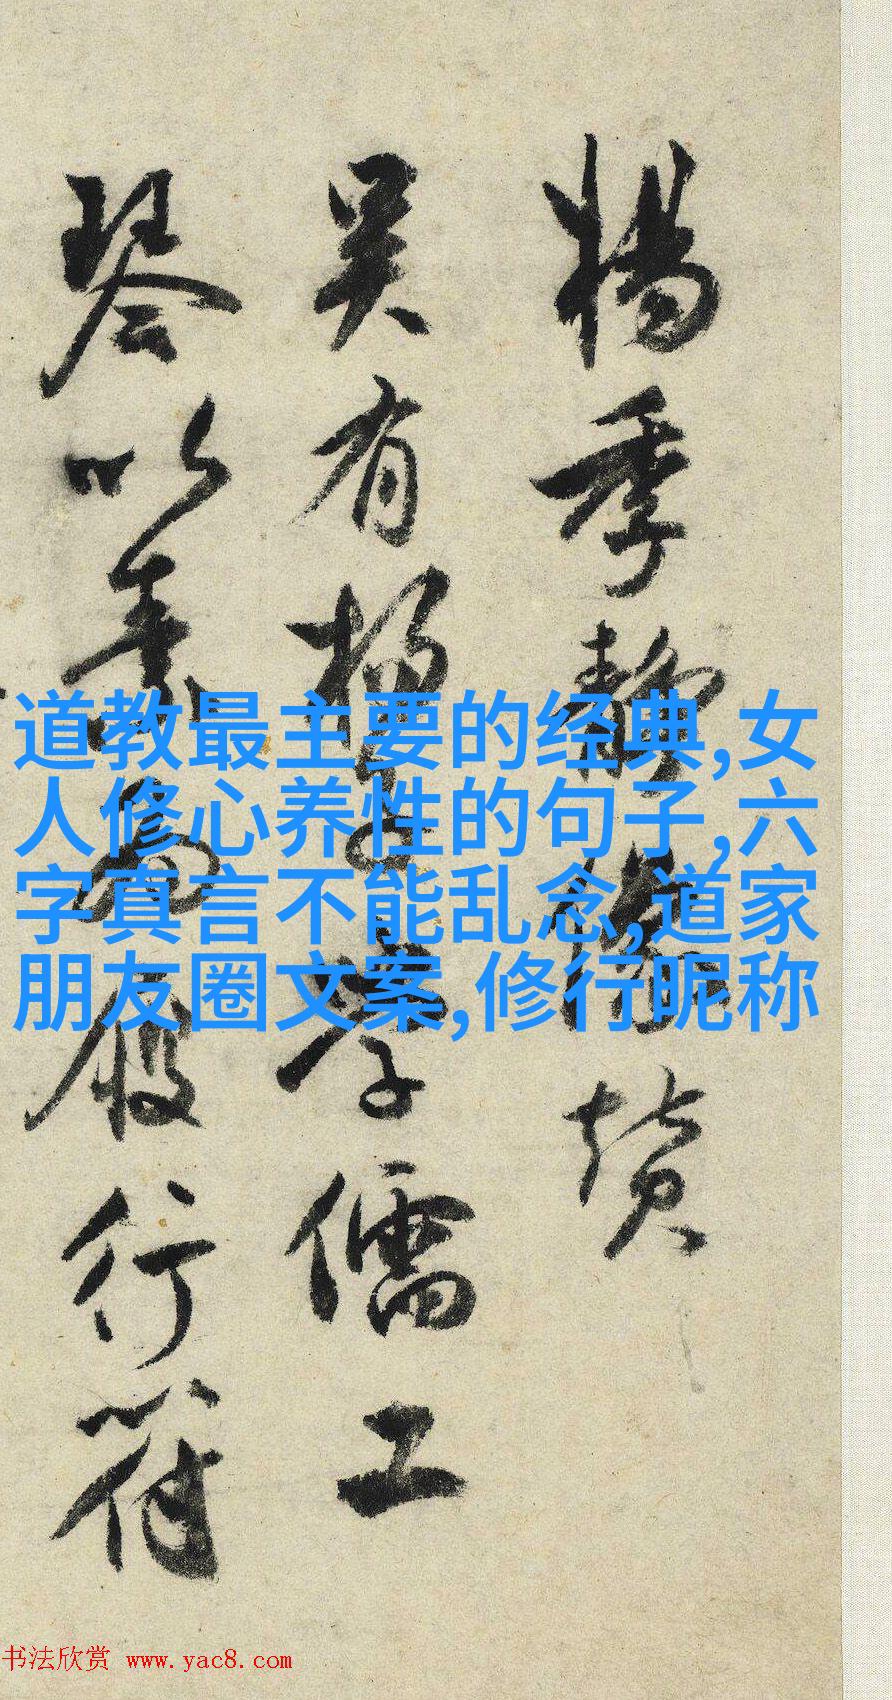 楊季静像賛
吴有楊子淳儒工
琴以為服行符
道教最主要的经典,女
人修心养性的句子,六
字真言不能乱念,道家
朋友圈文案,修行昵称
书法欣赏 www.yac8.com